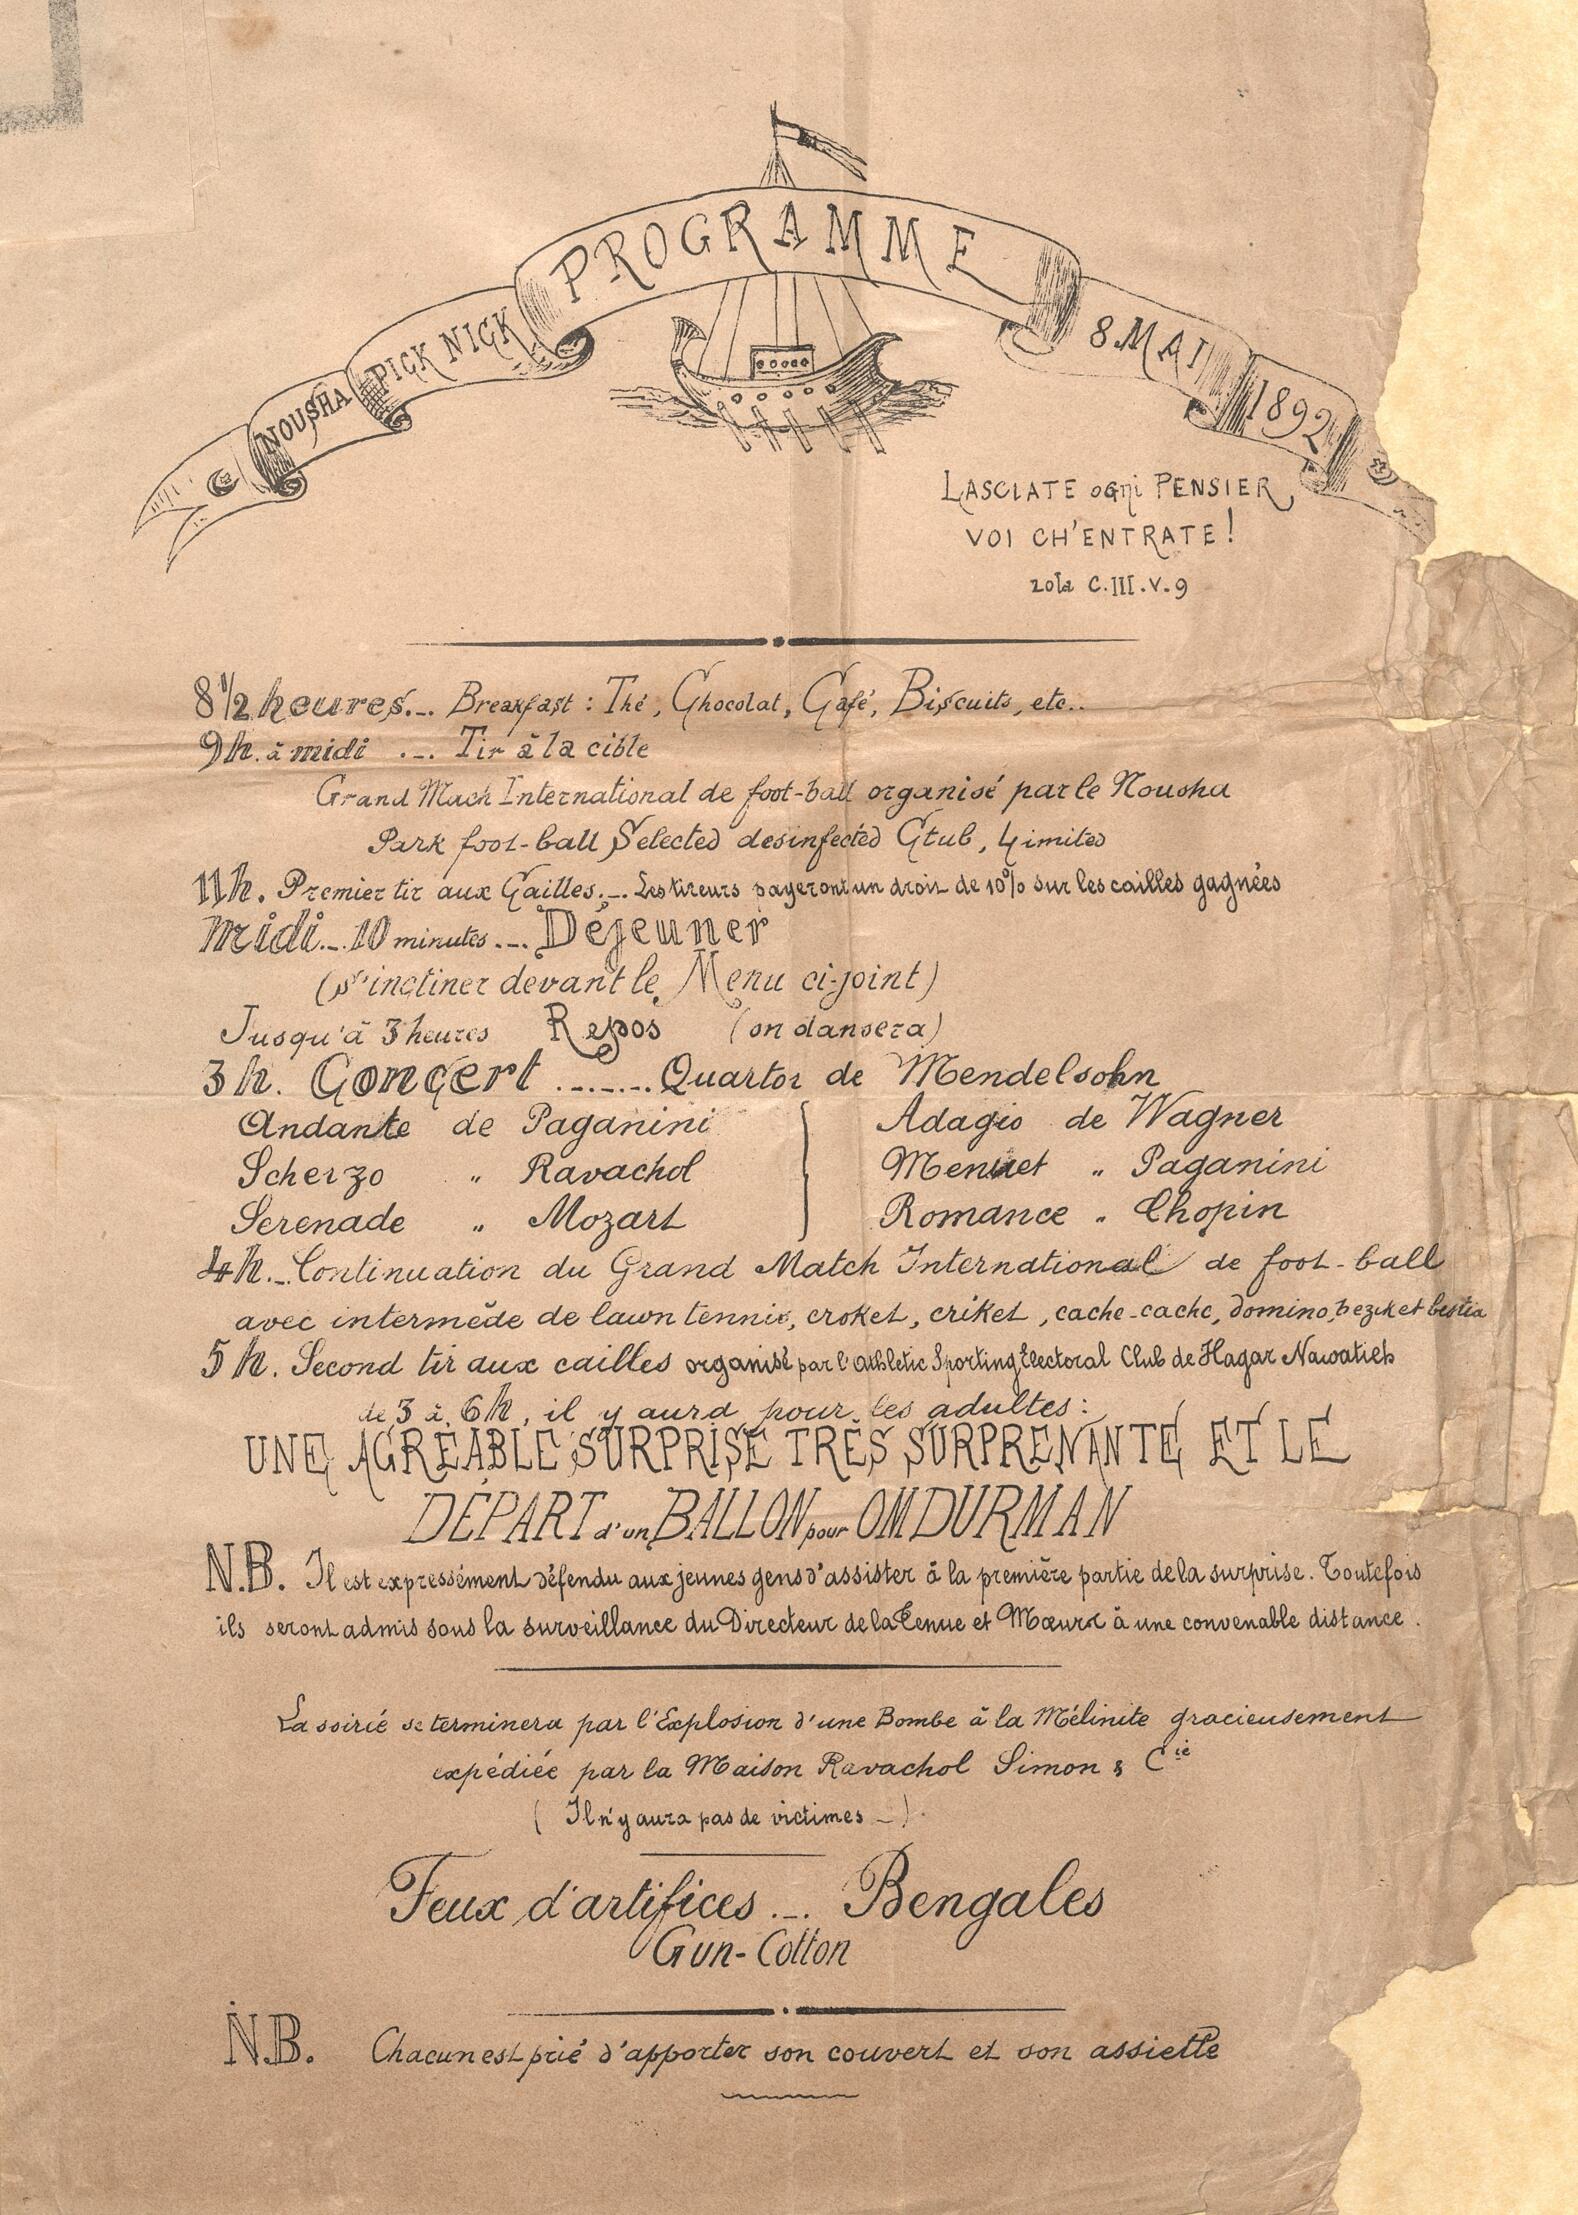 PROGRAMME
NOUSHA PICK NICK
8 MAI 1892
LASCIATE OGNI PENSIER
VOI CH'ENTRATE!
zola C.III.V.9
8 1/2 heures._. Breakfast : Thé, Chocolat, Café, Biscuits, etc..
9h. à midi ._. Tir à la cible
Grand Mach International de foot-ball organisé par le Nousha
Park foot-ball Selected desinfected Club, Limited
11h. Premier tir aux Cailles._. Les tireurs payeront un droit de 10% sur les cailles gagnées
midi._. 10 minutes._. Déjeuner
(s'incliner devant le Menu ci-joint)
Jusqu'à 3 heures Repos (on dansera)
3h. Concert ._._._. Quartor de Mendelsohn
Andante de Paganini } Adagio de Wagner
Scherzo " Ravachol } Menuet " Paganini
Serenade " Mozart } Romance " Chopin
4h._. Continuation du Grand Match International de foot-ball
avec intermède de lawn tennis, croket, criket, cache-cache, domino, bezik et bestia
5h. Second tir aux cailles organisé par l'Athletic Sporting Electoral Club de Hagar Nawatieh
de 3 à 6h, il y aura pour les adultes:
UNE AGRÉABLE SURPRISE TRÈS SURPRENANTE ET LE
DÉPART d'un BALLON pour OMDURMAN
N.B. Il est expressément défendu aux jeunes gens d'assister à la première partie de la surprise. Toutefois
ils seront admis sous la surveillance du Directeur de la Tenue et Mœurs à une convenable distance.
La soirié se terminera par l'Explosion d'une Bombe à la Mélinite gracieusement
expédiée par la Maison Ravachol Simon & Cie
( Il n'y aura pas de victimes _ ).
Feux d'artifices _._ Bengales
Gun-Cotton
N.B. Chacun est prié d'apporter son couvert et son assiette